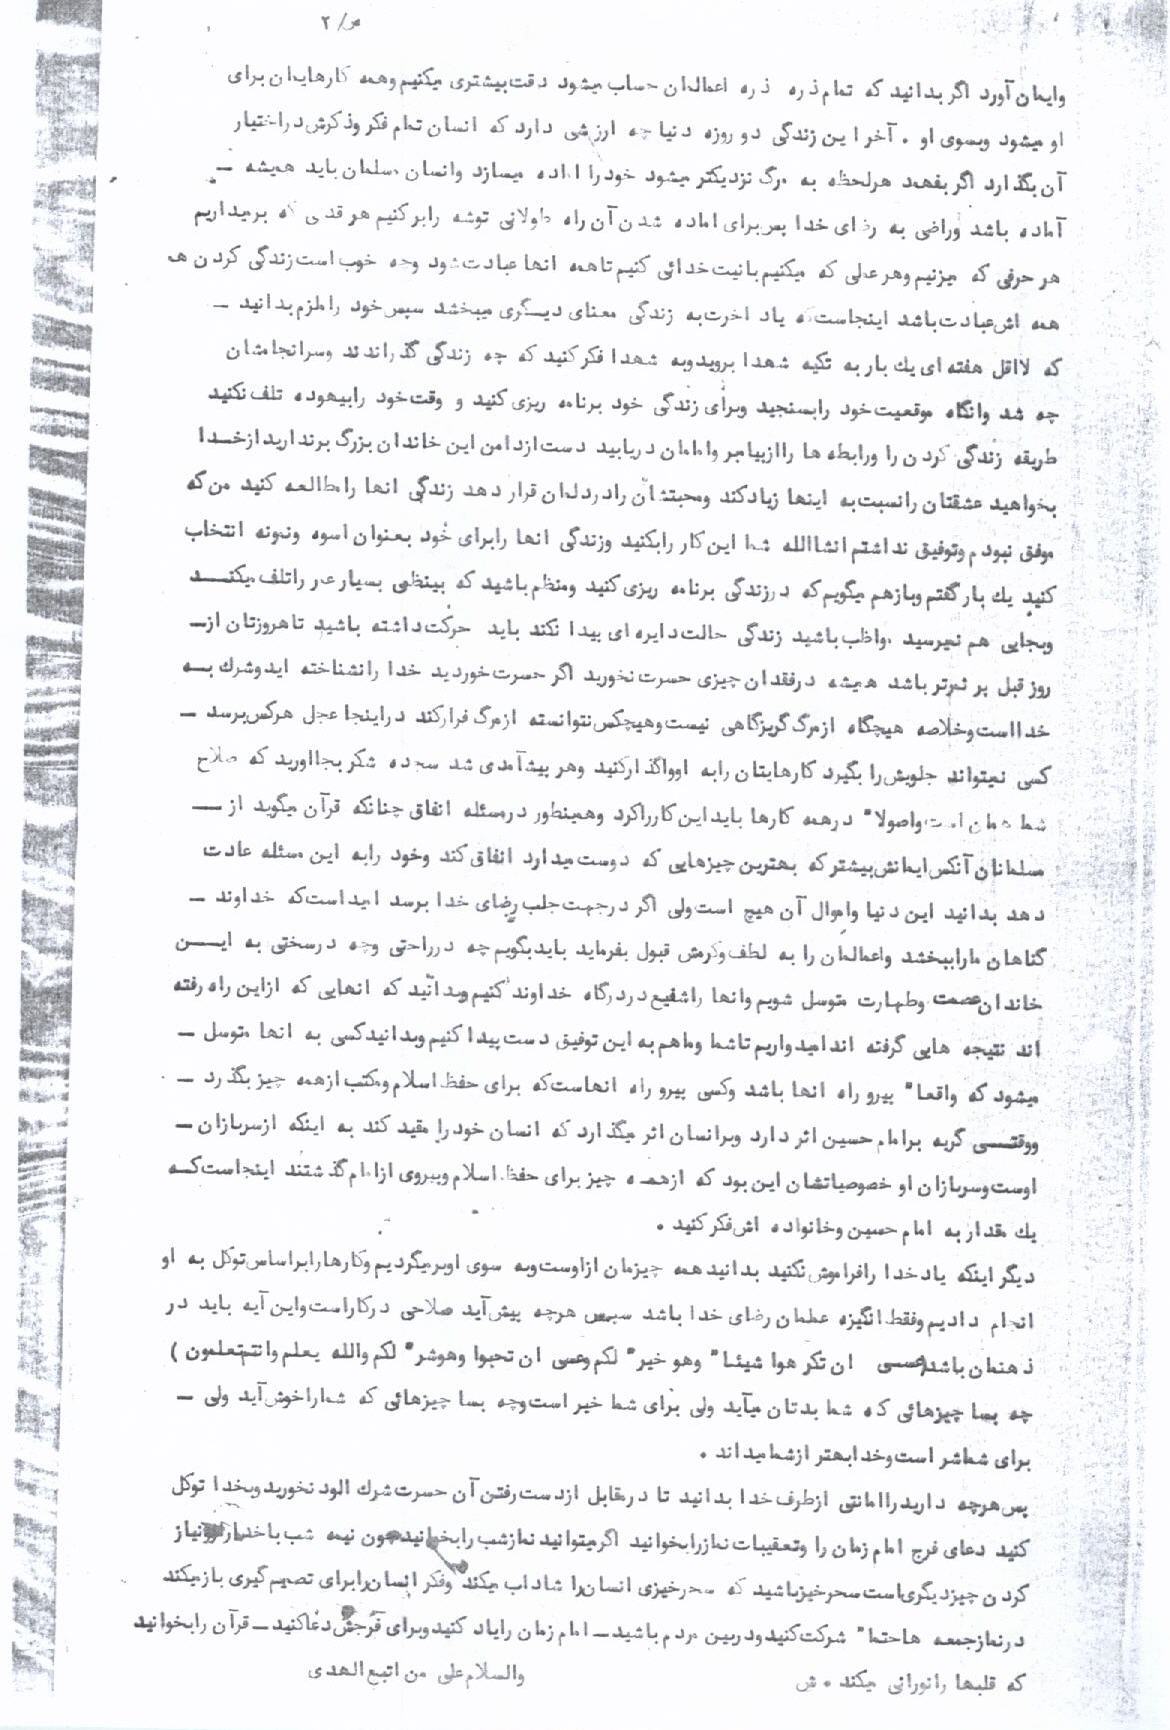 ص/ ۲
وایمان آورد اگر بدانید که تمام ذره ذره اعمالمان حساب میشود دقت بیشتری میکنیم وهمه کارهایمان برای
او میشود وبسوی او . آخر این زندگی دو روزه دنیا چه ارزشی دارد که انسان تمام فکر وذکرش در اختیار
آن بگذارد اگر بفهمد هر لحظه به مرگ نزدیکتر میشود خود را اماده میسازد وانسان مسلمان باید همیشه ـ
آماده باشد وراضی به رضای خدا پس برای اماده شدن آن راه طولانی توشه را برکنیم هر قدمی که برمیداریم
هر حرفی که میزنیم وهر عملی که میکنیم بانیت خدائی کنیم تاهمه انها عبادت شود وچه خوب است زندگی کردن هم
همه اش عبادت باشد اینجاست که یاد اخرت به زندگی معنای دیگری میبخشد سپس خود را ملزم بدانید ـ
که لااقل هفته ای یك بار به تکیه شهدا بروید وبه شهدا فکر کنید که چه زندگی گذراندند وسرانجامشان
چه شد وانگاه موقعیت خود را بسنجید وبرای زندگی خود برنامه ریزی کنید و وقت خود را بیهوده تلف نکنید
طریقه زندگی کردن را ورابطه ها را از پیامبر وامامان دریابید دست از دامن این خاندان بزرگ برندارید از خدا
بخواهید عشقتان را نسبت به اینها زیاد کند ومحبتشان را در دلمان قرار دهد زندگی انها را مطالعه کنید من که
موفق نبودم وتوفیق نداشتم انشاالله شما این کار را بکنید وزندگی انها را برای خود بعنوان اسوه ونمونه انتخاب
کنید یك بار گفتم وبازهم میگویم که در زندگی برنامه ریزی کنید ومنظم باشید که بینظمی بسیار عمر را تلف میکند
وبجایی هم نمیرسید مواظب باشید زندگی حالت دایره ای پیدا نکند باید حرکت داشته باشید تا هروزتان از ـ
روز قبل پر ثمرتر باشد همیشه در فقدان چیزی حسرت نخورید اگر حسرت خوردید خدا را نشناخته اید وشرك به
خدااست وخلاصه هیچگاه از مرگ گریزگاهی نیست وهیچکس نتوانسته از مرگ فرار کند در اینجا عجل هرکس برسد ـ
کسی نمیتواند جلویش را بگیرد کارهایتان را به او واگذار کنید وهر پیشآمدی شد سجده شکر بجا اورید که صلاح
شما همان است واصولا" در همه کارها باید این کار را کرد وهمینطور در مسئله انفاق چنانکه قرآن میگوید از ـ
مسلمانان آنکس ایمانش بیشتر که بهترین چیزهایی که دوست میدارد انفاق کند وخود را به این مسئله عادت
دهد بدانید این دنیا واموال آن هیچ است ولی اگر در جهت جلب رضای خدا برسد امید است که خداوند ـ
گناهان مارا ببخشد واعمالمان را به لطف وکرمش قبول بفرماید باید بگویم چه در راحتی وچه در سختی به این
خاندان عصمت وطهارت متوسل شویم وانها را شفیع در درگاه خداوند کنیم وبدانید که انهایی که از این راه رفته
اند نتیجه هایی گرفته اند امیدواریم تا شما وما هم به این توفیق دست پیدا کنیم وبدانید کسی به انها متوسل ـ
میشود که واقعا" پیرو راه انها باشد وکسی پیرو راه انهاست که برای حفظ اسلام ومکتب از همه چیز بگذرد ـ
ووقتی گریه بر امام حسین اثر دارد وبر انسان اثر میگذارد که انسان خود را مقید کند به اینکه از سربازان ـ
اوست وسربازان او خصوصیاتشان این بود که از همه چیز برای حفظ اسلام وپیروی از امام گذشتند اینجاست که
یك مقدار به امام حسین وخانواده اش فکر کنید .
دیگر اینکه یاد خدا را فراموش نکنید بدانید همه چیزمان از اوست وبه سوی او برمیگردیم وکارها را بر اساس توکل به او
انجام دادیم وفقط انگیزه عملمان رضای خدا باشد سپس هرچه پیش آید صلاحی در کار است واین آیه باید در
ذهنمان باشد (عسی ان تکرهوا شیئا" وهو خیر" لکم وعسی ان تحبوا وهوشر" لکم والله یعلم وانتم تعلمون )
چه بسا چیزهائی که شما بدتان میآید ولی برای شما خیر است وچه بسا چیزهائی که شمارا خوش آید ولی ـ
برای شما شر است وخدا بهتر از شما میداند .
پس هرچه دارید را امانتی از طرف خدا بدانید تا در مقابل از دست رفتن آن حسرت شرك الود نخورید وبخدا توکل
کنید دعای فرج امام زمان را وتعقیبات نماز را بخوانید اگر میتوانید نماز شب را بخوانید چون نیمه شب با خدا راز ونیاز
کردن چیز دیگری است سحرخیز باشید که سحرخیزی انسان را شاداب میکند وفکر انسان را برای تصمیم گیری باز میکند
در نماز جمعه ها حتما" شرکت کنید ودر بین مردم باشید ـ امام زمان را یاد کنید وبرای فرجش دعا کنید ـ قرآن را بخوانید
که قلبها را نورانی میکند . ش والسلام علی من اتبع الهدی